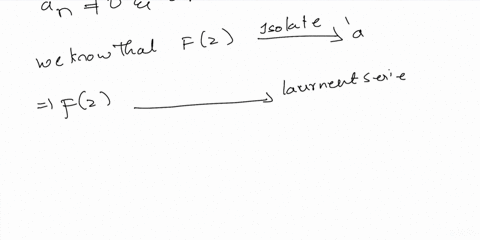 an ≠ 0 &
we know that F(2) Isolate 'a
=) F(2) laurnent serie